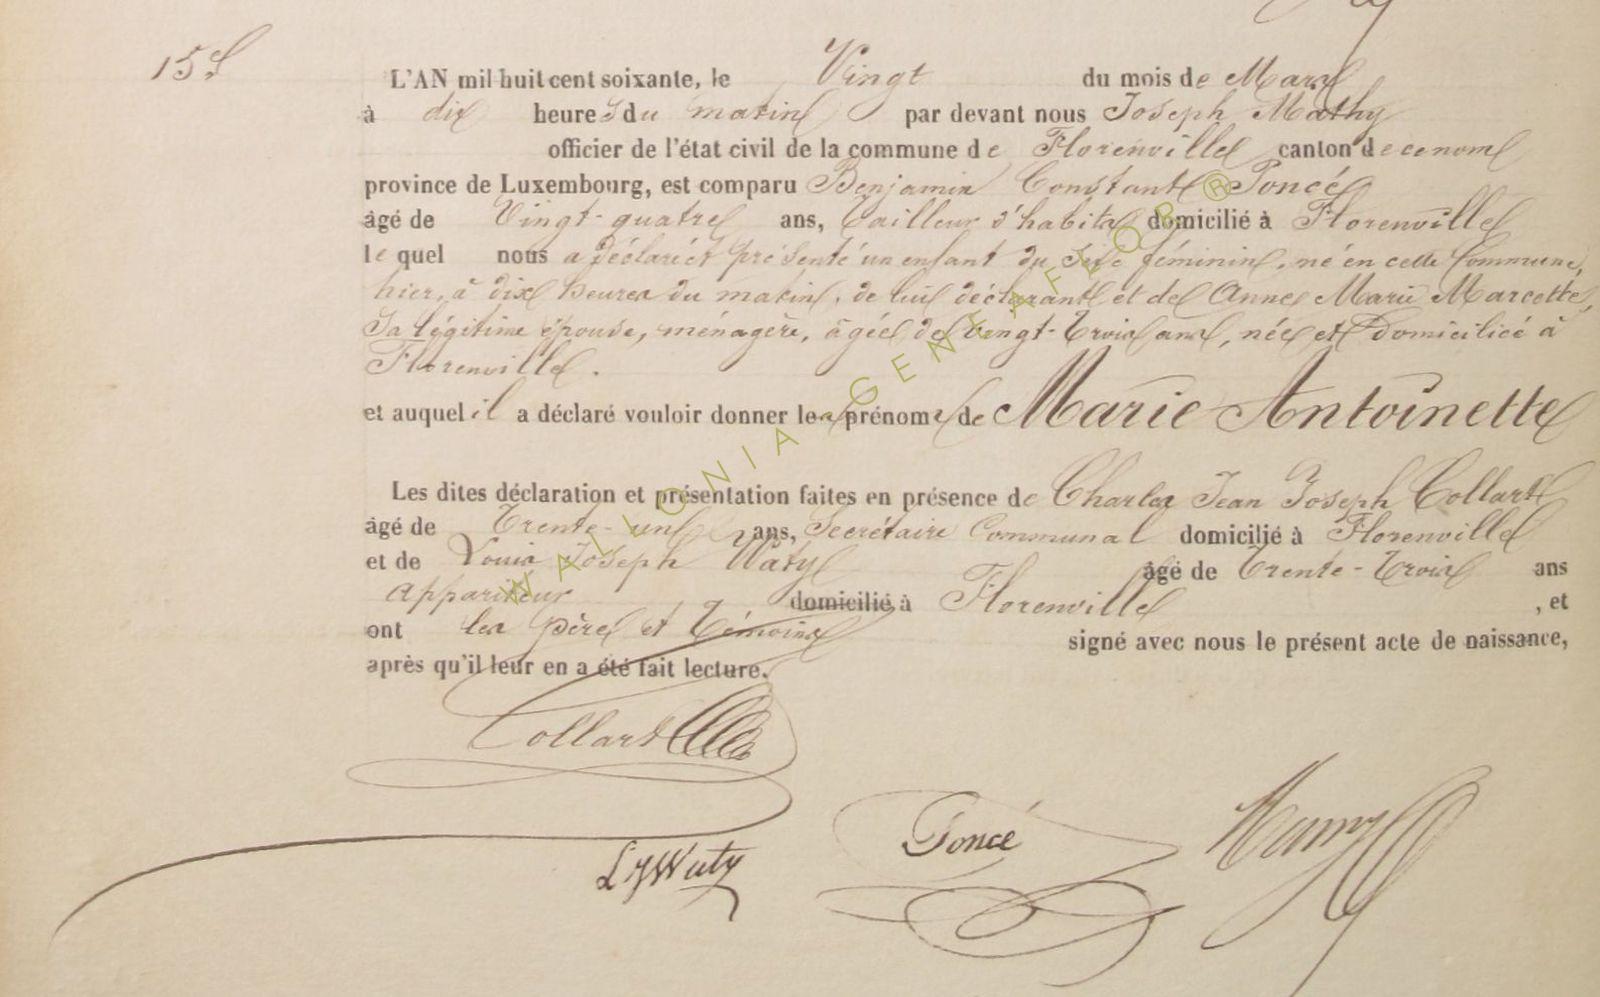 15
L'AN mil huit cent soixante, le Vingt du mois de Mars
à dix heures du matin par devant nous Joseph Mathy
officier de l'état civil de la commune de Florenville canton de ce nom
province de Luxembourg, est comparu Benjamin Constant Poncé
âgé de Vingt-quatre ans, Tailleur d'habits domicilié à Florenville
lequel nous a déclaré et présenté un enfant du sexe féminin, né en cette Commune,
hier, à dix heures du matin, de lui déclarant et de Anne Marie Marcette,
sa légitime épouse, ménagère, âgée de vingt-trois ans, née et domiciliée à
Florenville.
et auquel il a déclaré vouloir donner les prénoms de Marie Antoinette
Les dites déclaration et présentation faites en présence de Charles Jean Joseph Collart
âgé de Trente-un ans, Secrétaire Communal domicilié à Florenville
et de Louis Joseph Waty âgé de Trente-Trois ans
appariteur domicilié à Florenville, et
ont les père et Témoins signé avec nous le présent acte de naissance,
après qu'il leur en a été fait lecture.
Collart
LJWaty
Poncé
WALLONIA GENEAFLOR®